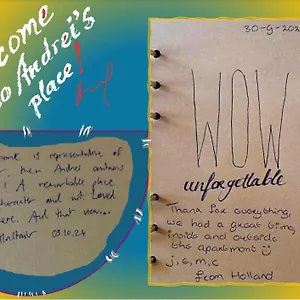 come
to Andrei's
place!
ome is representative of
then Andrei
! A remarkable place
character and not loved
ere. And that view...
Alistair 03.10.24
30-9-202
WOW
unforgettable
Thank for everything,
we had a great time,
inside and outside
the apartment
j, e, m, c
from Holland